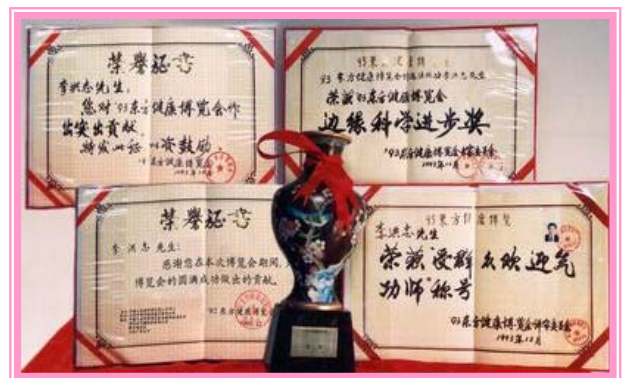 荣誉证书
李洪志先生:
您对'93东方健康博览会作
出突出贡献,
特发此证 以资鼓励。
'93东方健康博览会
荣获'93东方健康博览会
边缘科学进步奖
'93东方健康博览会评审委员会
1993年12月
荣誉证书
李洪志先生:
感谢您在本次博览会期间,
博览会的圆满成功做出的贡献。
'92东方健康博览会
93東方健康博览
李洪志先生
荣获"受群众欢迎气
功师"称号
93东方健康博览会评审委员会
1993年12月